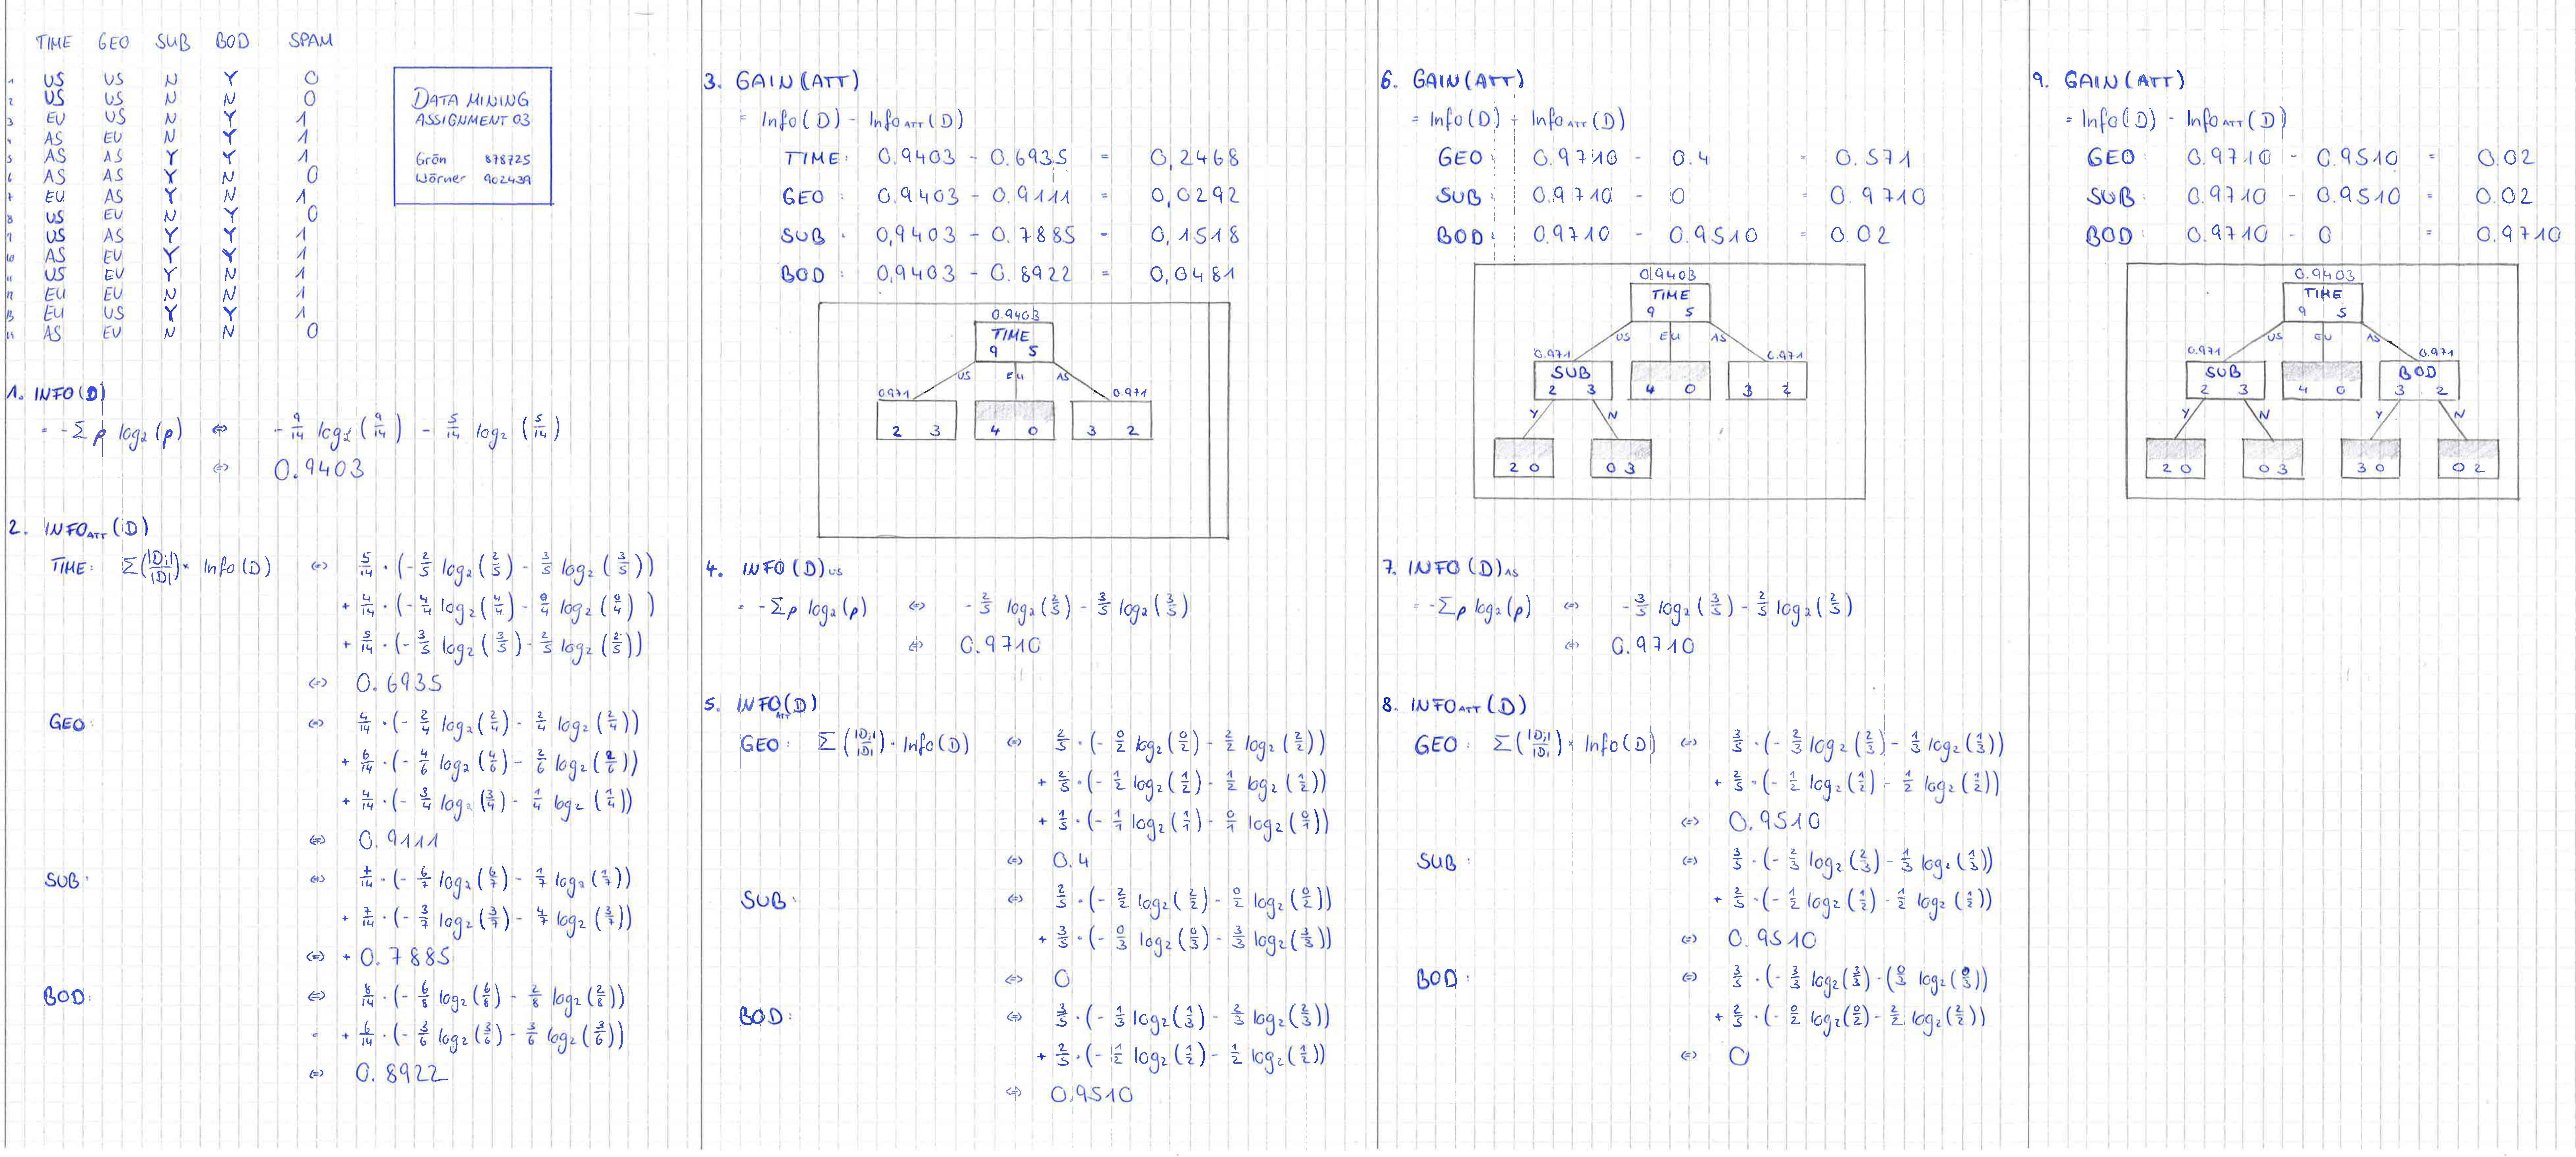 TIME GEO SUB BOD SPAM
1 US US N Y 0
2 US US N N 0
3 EU US N Y 1
4 AS EU N Y 1
5 AS AS Y Y 1
6 AS AS Y N 0
7 EU AS Y N 1
8 US EU N Y 0
9 US AS Y Y 1
10 AS EU Y Y 1
11 US EU Y N 1
12 EU EU N N 1
13 EU US Y Y 1
14 AS EU N N 0
DATA MINING
ASSIGNMENT 03
Grön 878725
Wörner 902439
1. INFO(D)
= -Σ p log₂(p) ⇔ -9/14 log₂(9/14) - 5/14 log₂(5/14)
⇔ 0.9403
2. INFO ATT (D)
TIME: Σ(|Di|/|D|) × Info(D) ⇔ 5/14 · (-2/5 log₂(2/5) - 3/5 log₂(3/5))
+ 4/14 · (-4/4 log₂(4/4) - 0/4 log₂(0/4))
+ 5/14 · (-3/5 log₂(3/5) - 2/5 log₂(2/5))
⇔ 0.6935
GEO: ⇔ 4/14 · (-2/4 log₂(2/4) - 2/4 log₂(2/4))
+ 6/14 · (-4/6 log₂(4/6) - 2/6 log₂(2/6))
+ 4/14 · (-3/4 log₂(3/4) - 1/4 log₂(1/4))
⇔ 0.9111
SUB: ⇔ 7/14 · (-6/7 log₂(6/7) - 1/7 log₂(1/7))
+ 7/14 · (-3/7 log₂(3/7) - 4/7 log₂(3/7))
⇔ + 0.7885
BOD: ⇔ 8/14 · (-6/8 log₂(6/8) - 2/8 log₂(2/8))
= + 6/14 · (-3/6 log₂(3/6) - 3/6 log₂(3/6))
⇔ 0.8922
3. GAIN(ATT)
= Info(D) - Info ATT (D)
TIME: 0.9403 - 0.6935 = 0,2468
GEO: 0.9403 - 0.9111 = 0,0292
SUB: 0,9403 - 0.7885 = 0,1518
BOD: 0,9403 - 0.8922 = 0,0481
0.9403
TIME
9 5
US EU AS
0.971 0.971
2 3 4 0 3 2
4. INFO(D) US
= -Σ p log₂(p) ⇔ -2/5 log₂(2/5) - 3/5 log₂(3/5)
⇔ 0.9710
5. INFO ATT (D)
GEO: Σ(|Di|/|D|) · Info(D) ⇔ 2/5 · (-0/2 log₂(0/2) - 2/2 log₂(2/2))
+ 2/5 · (-1/2 log₂(1/2) - 1/2 log₂(1/2))
+ 1/5 · (-1/1 log₂(1/1) - 0/1 log₂(0/1))
⇔ 0.4
SUB: ⇔ 2/5 · (-2/2 log₂(2/2) - 0/2 log₂(0/2))
+ 3/5 · (-0/3 log₂(0/3) - 3/3 log₂(3/3))
⇔ 0
BOD: ⇔ 3/5 · (-1/3 log₂(1/3) - 2/3 log₂(2/3))
+ 2/5 · (-1/2 log₂(1/2) - 1/2 log₂(1/2))
⇔ 0.9510
6. GAIN(ATT)
= Info(D) - Info ATT (D)
GEO: 0.9710 - 0.4 = 0.571
SUB: 0.9710 - 0 = 0.9710
BOD: 0.9710 - 0.9510 = 0.02
0.9403
TIME
9 5
US EU AS
0.971 0.971
SUB
2 3 4 0 3 2
Y N
2 0 0 3
7. INFO(D) AS
= -Σ p log₂(p) ⇔ -3/5 log₂(3/5) - 2/5 log₂(2/5)
⇔ 0.9710
8. INFO ATT (D)
GEO: Σ(|Di|/|D|) × Info(D) ⇔ 3/5 · (-2/3 log₂(2/3) - 1/3 log₂(1/3))
+ 2/5 · (-1/2 log₂(1/2) - 1/2 log₂(1/2))
⇔ 0.9510
SUB: ⇔ 3/5 · (-2/3 log₂(2/3) - 1/3 log₂(1/3))
+ 2/5 · (-1/2 log₂(1/2) - 1/2 log₂(1/2))
⇔ 0.9510
BOD: ⇔ 3/5 · (-3/3 log₂(3/3) - (0/3 log₂(0/3))
+ 2/5 · (-0/2 log₂(0/2) - 2/2 log₂(2/2))
⇔ 0
9. GAIN(ATT)
= Info(D) - Info ATT (D)
GEO: 0.9710 - 0.9510 = 0.02
SUB: 0.9710 - 0.9510 = 0.02
BOD: 0.9710 - 0 = 0.9710
0.9403
TIME
9 5
US EU AS
0.971 0.971
SUB BOD
2 3 4 0 3 2
Y N Y N
2 0 0 3 3 0 0 2